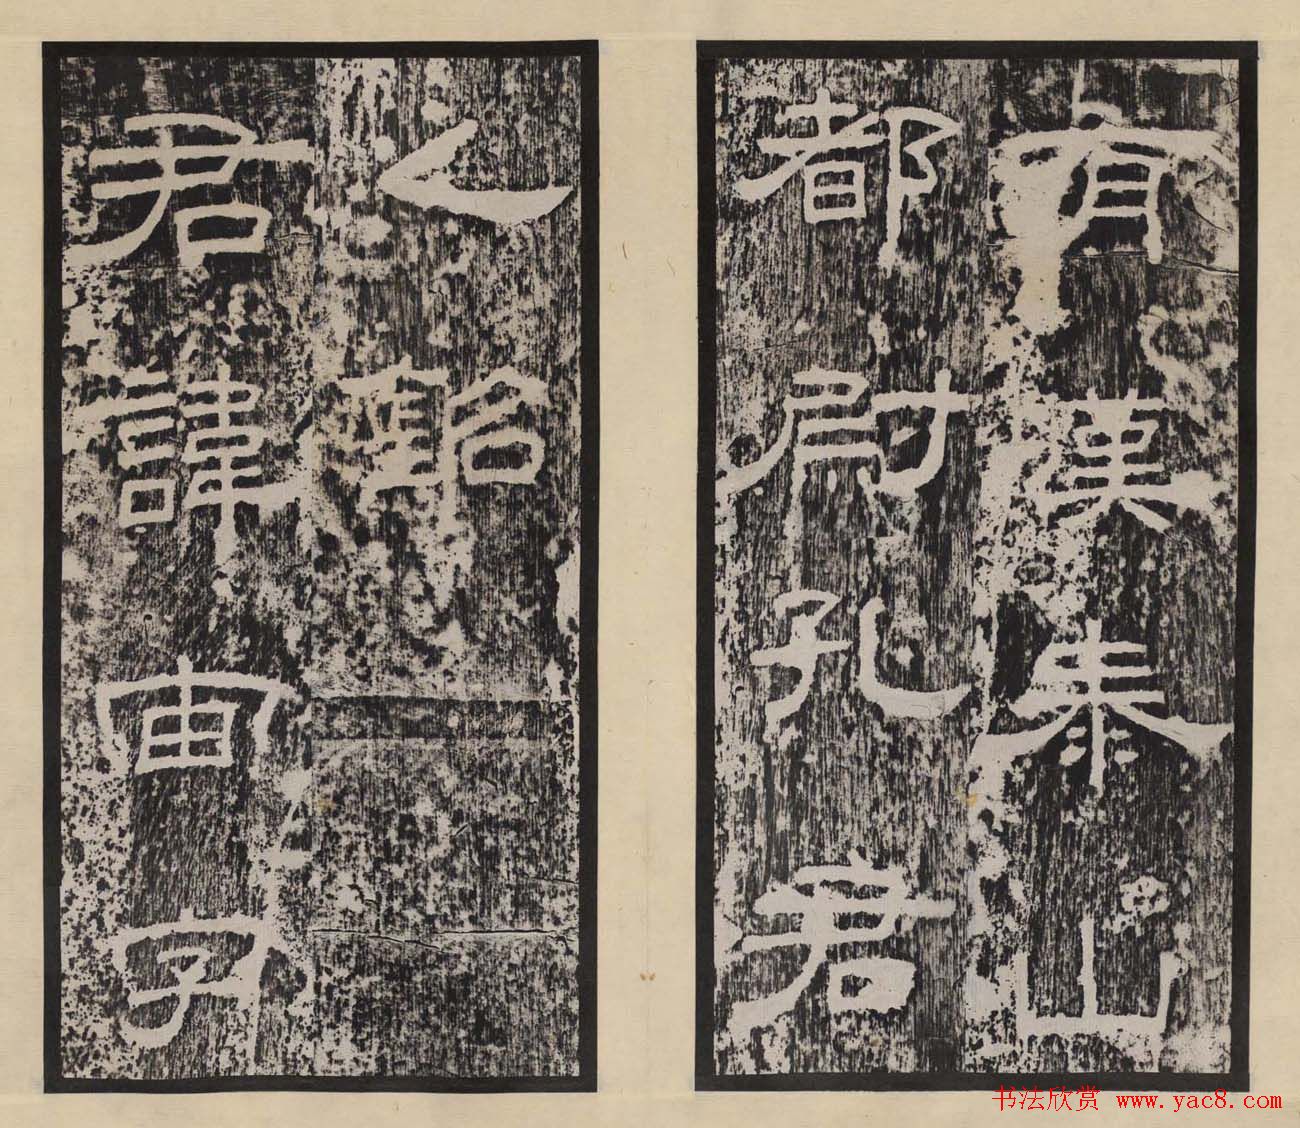 有漢泰山
都尉孔君
之銘
君諱宙字
书法欣赏 www.yac8.com